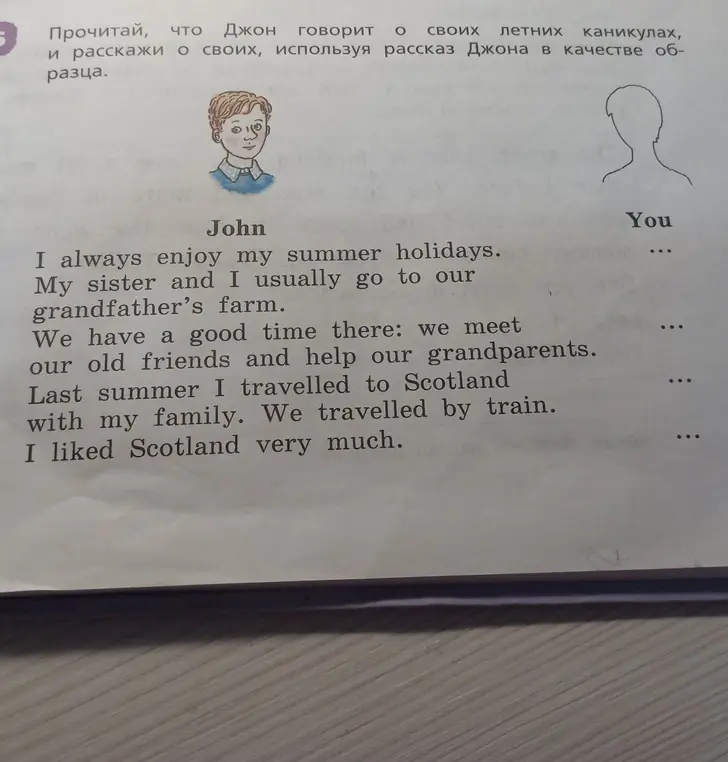 5
Прочитай, что Джон говорит о своих летних каникулах,
и расскажи о своих, используя рассказ Джона в качестве об-
разца.
John
You
I always enjoy my summer holidays.
...
My sister and I usually go to our
grandfather's farm.
We have a good time there: we meet
...
our old friends and help our grandparents.
Last summer I travelled to Scotland
...
with my family. We travelled by train.
I liked Scotland very much.
...